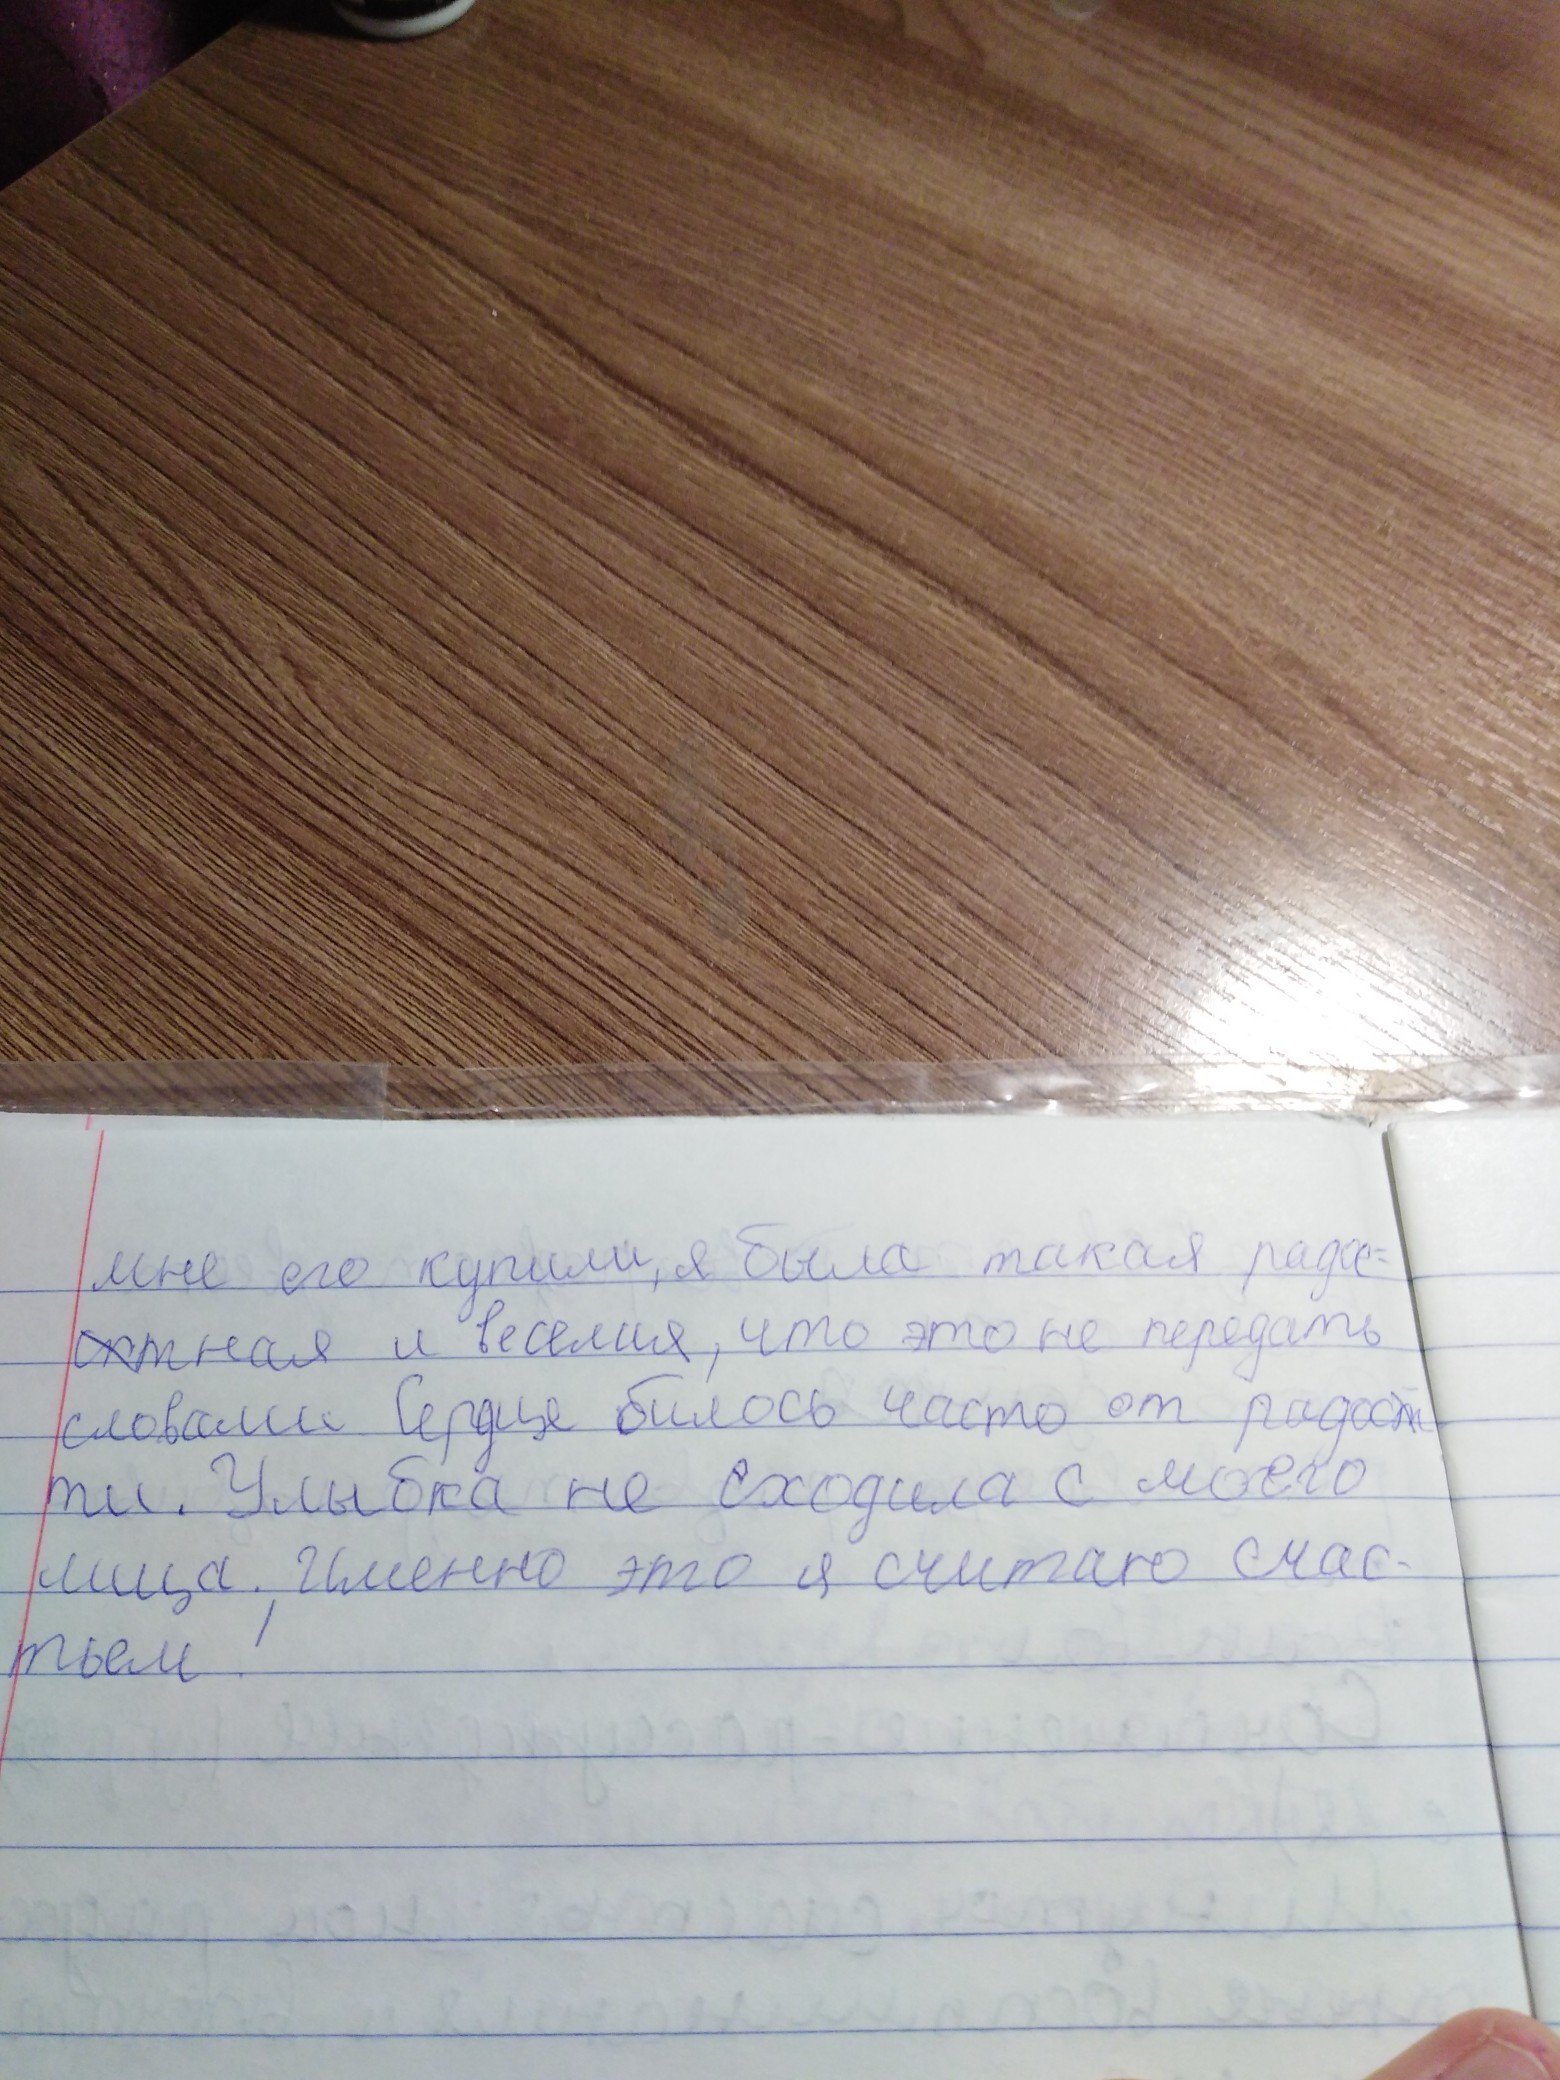 мне его купили, я была такая радос-
тная и веселия, что это не передать
словами Сердце билось часто от радост
ти. Улыбка не сходила с моего
лица. Именно это я считаю счас-
тьем!